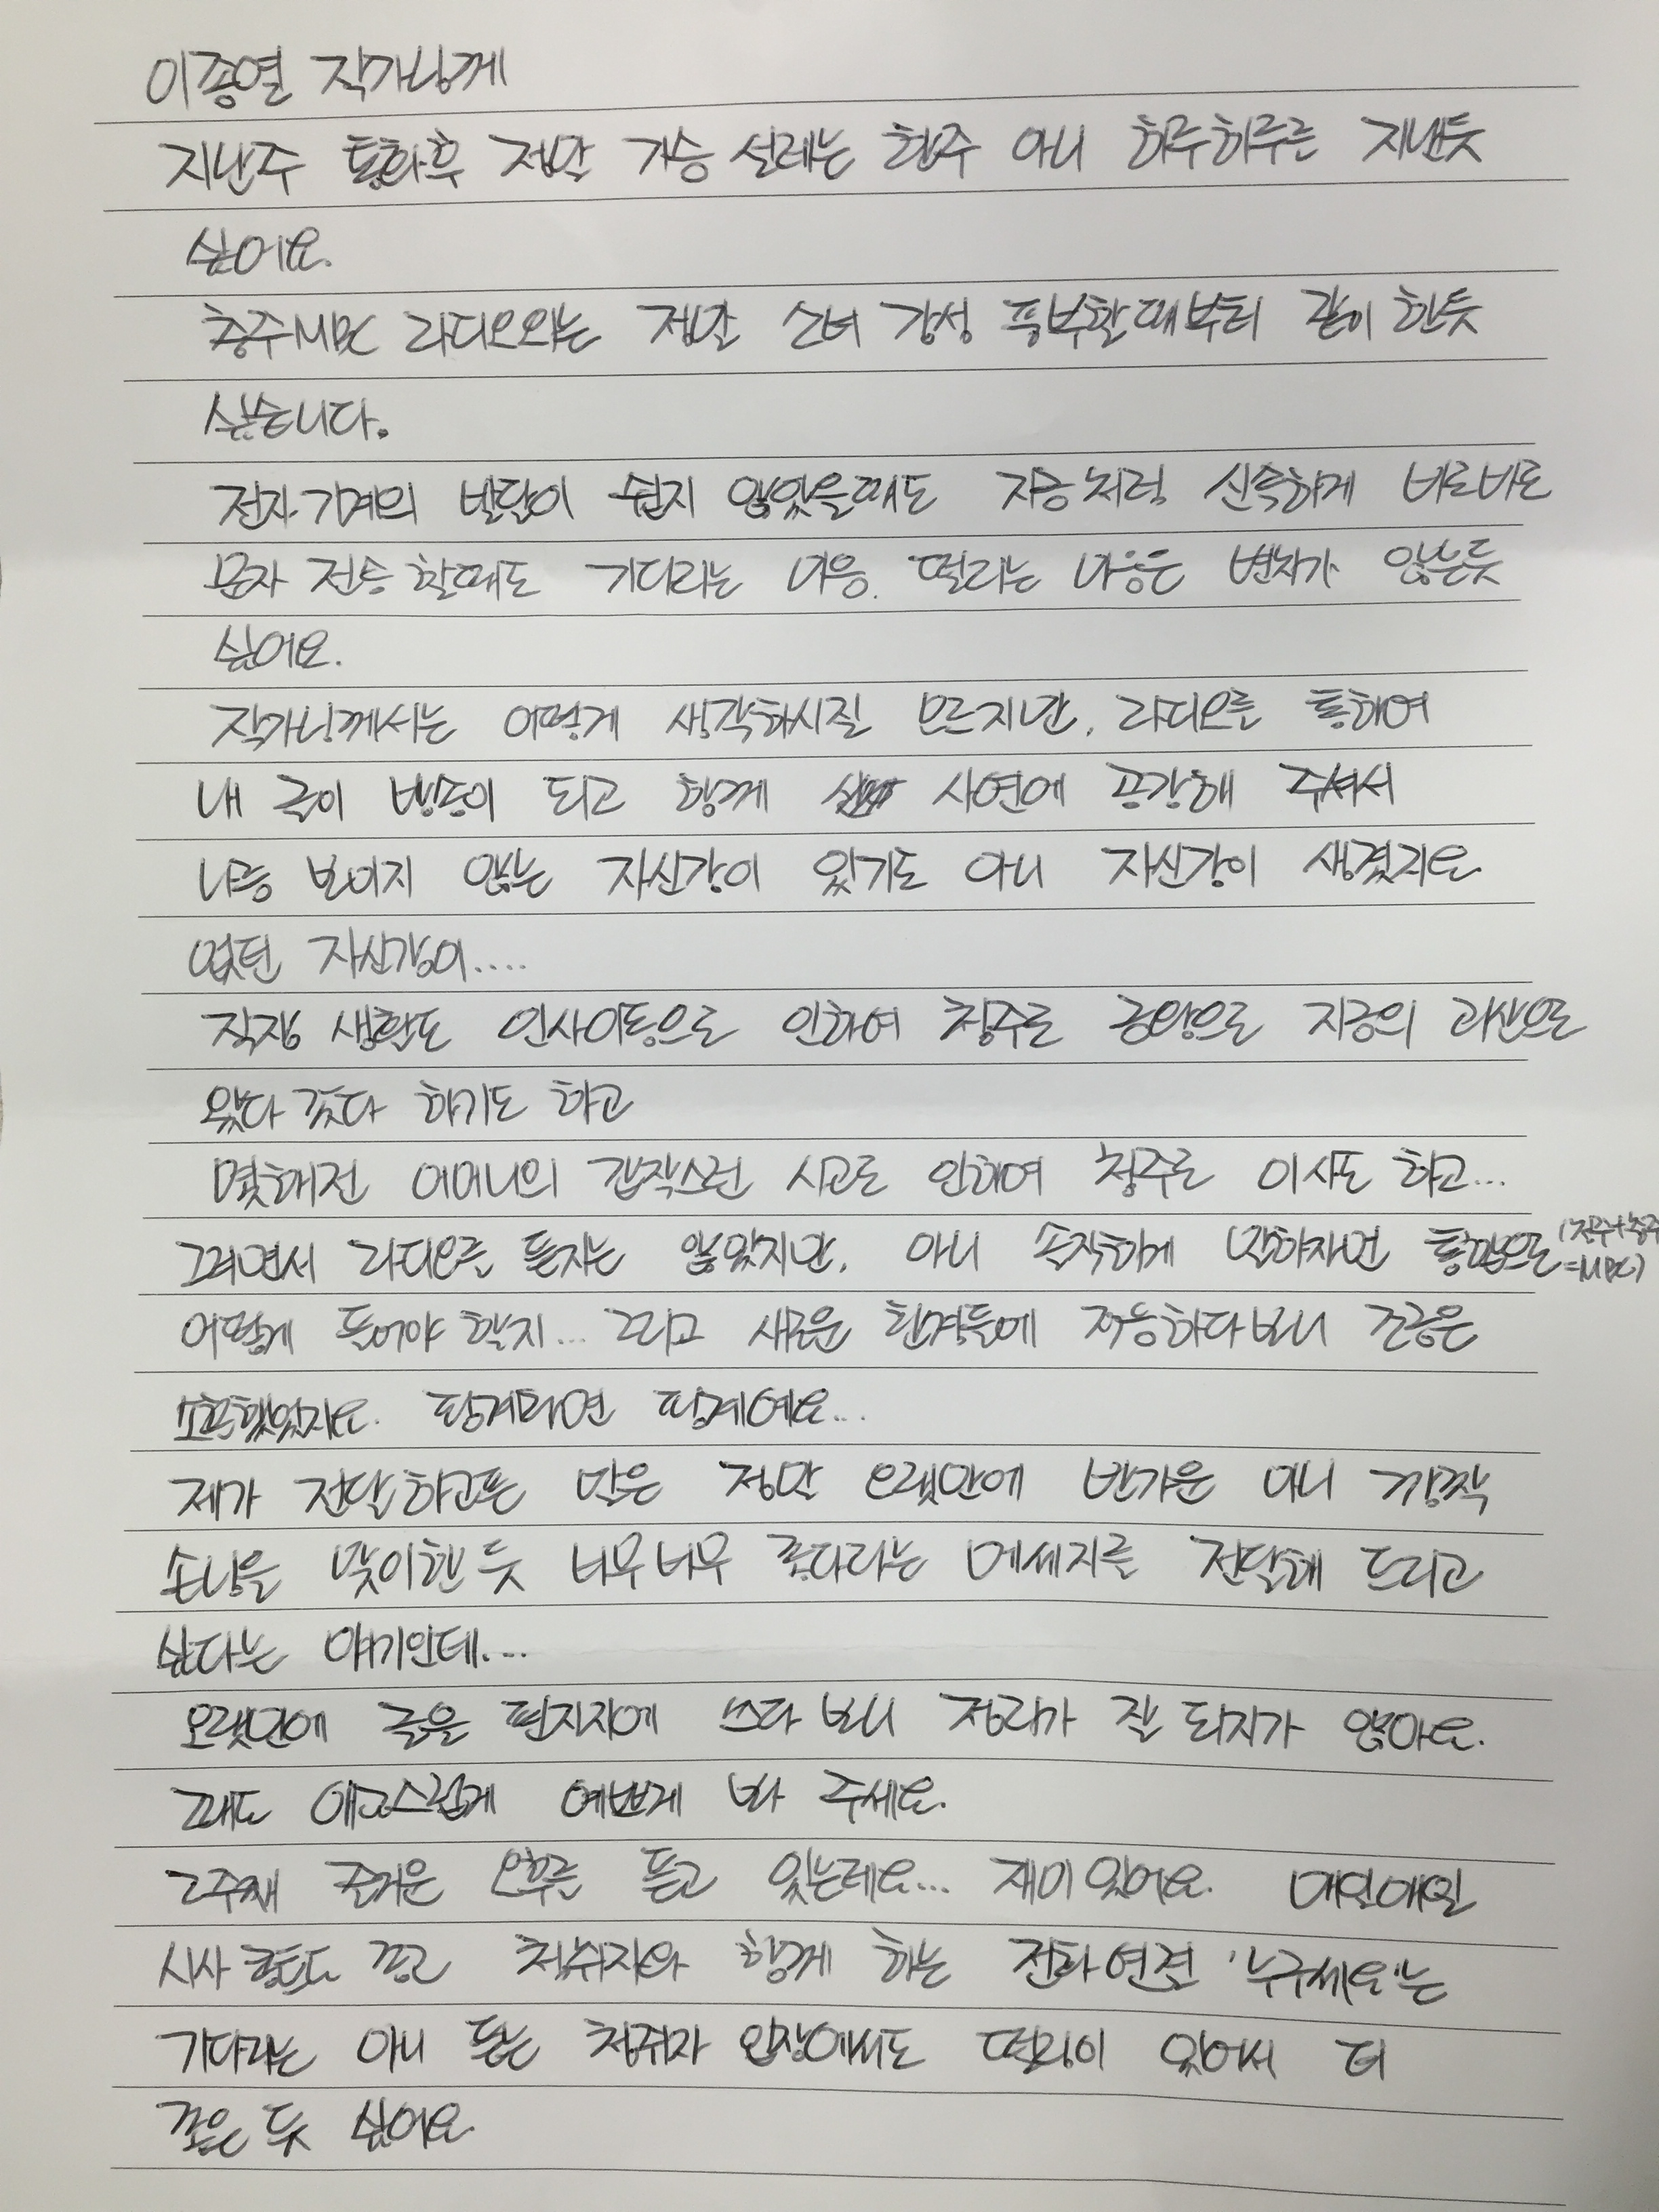 이종열 작가님께
지난주 통화후 정말 가슴 설레는 한주 아니 하루하루를 지낸듯
싶어요.
충주MBC 라디오와는 정말 소녀 감성 풍부할때부터 같이 한듯
싶습니다.
전자기계의 발달이 쉽지 않았을때도 지금처럼 신속하게 바로바로
문자 전송 할때도 기다리는 마음. 떨리는 마음은 변치가 않는듯
싶어요.
작가님께서는 어떻게 생각하시질 모르지만, 라디오를 통하여
내 글이 방송이 되고 함께 사연에 공감해 주셔서
나름 보이지 않는 자신감이 있기도 아니 자신감이 생겼지요
없던 자신감이....
직장 생활도 인사이동으로 인하여 청주로 음성으로 지금의 괴산으로
왔다 갔다 하기도 하고
몇해전 어머니의 갑작스런 사고로 인하여 청주로 이사도 하고...
그러면서 라디오를 듣지는 않았지만, 아니 솔직하게 말하자면 통합으로 (청주+충주
=MBC)
어떻게 들어야 할지... 그리고 새로운 환경들에 적응하다보니 조금은
소홀했었지요. 핑계라면 핑계예요...
제가 전달하고픈 말은 정말 오랫만에 반가운 아니 깜짝
손님을 맞이한 듯 너무너무 좋다라는 메세지를 전달해 드리고
싶다는 얘기인데....
오랫만에 글을 편지지에 쓰다 보니 정리가 잘 되지가 않아요.
그래도 애교스럽게 예쁘게 봐 주세요.
2주째 즐거운 오후를 듣고 있는데요... 재미있어요. 매일매일
시사 퀴즈도 풀고 청취자와 함께 하는 전화연결 '누구세요'는
기다리는 아니 듣는 청취자 입장에서도 떨림이 있어서 더
좋은 듯 싶어요